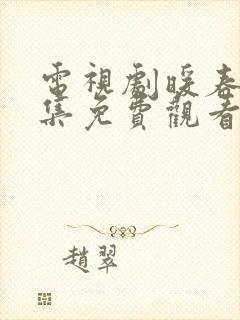 電視劇暖春
集免費觀看
趙翠